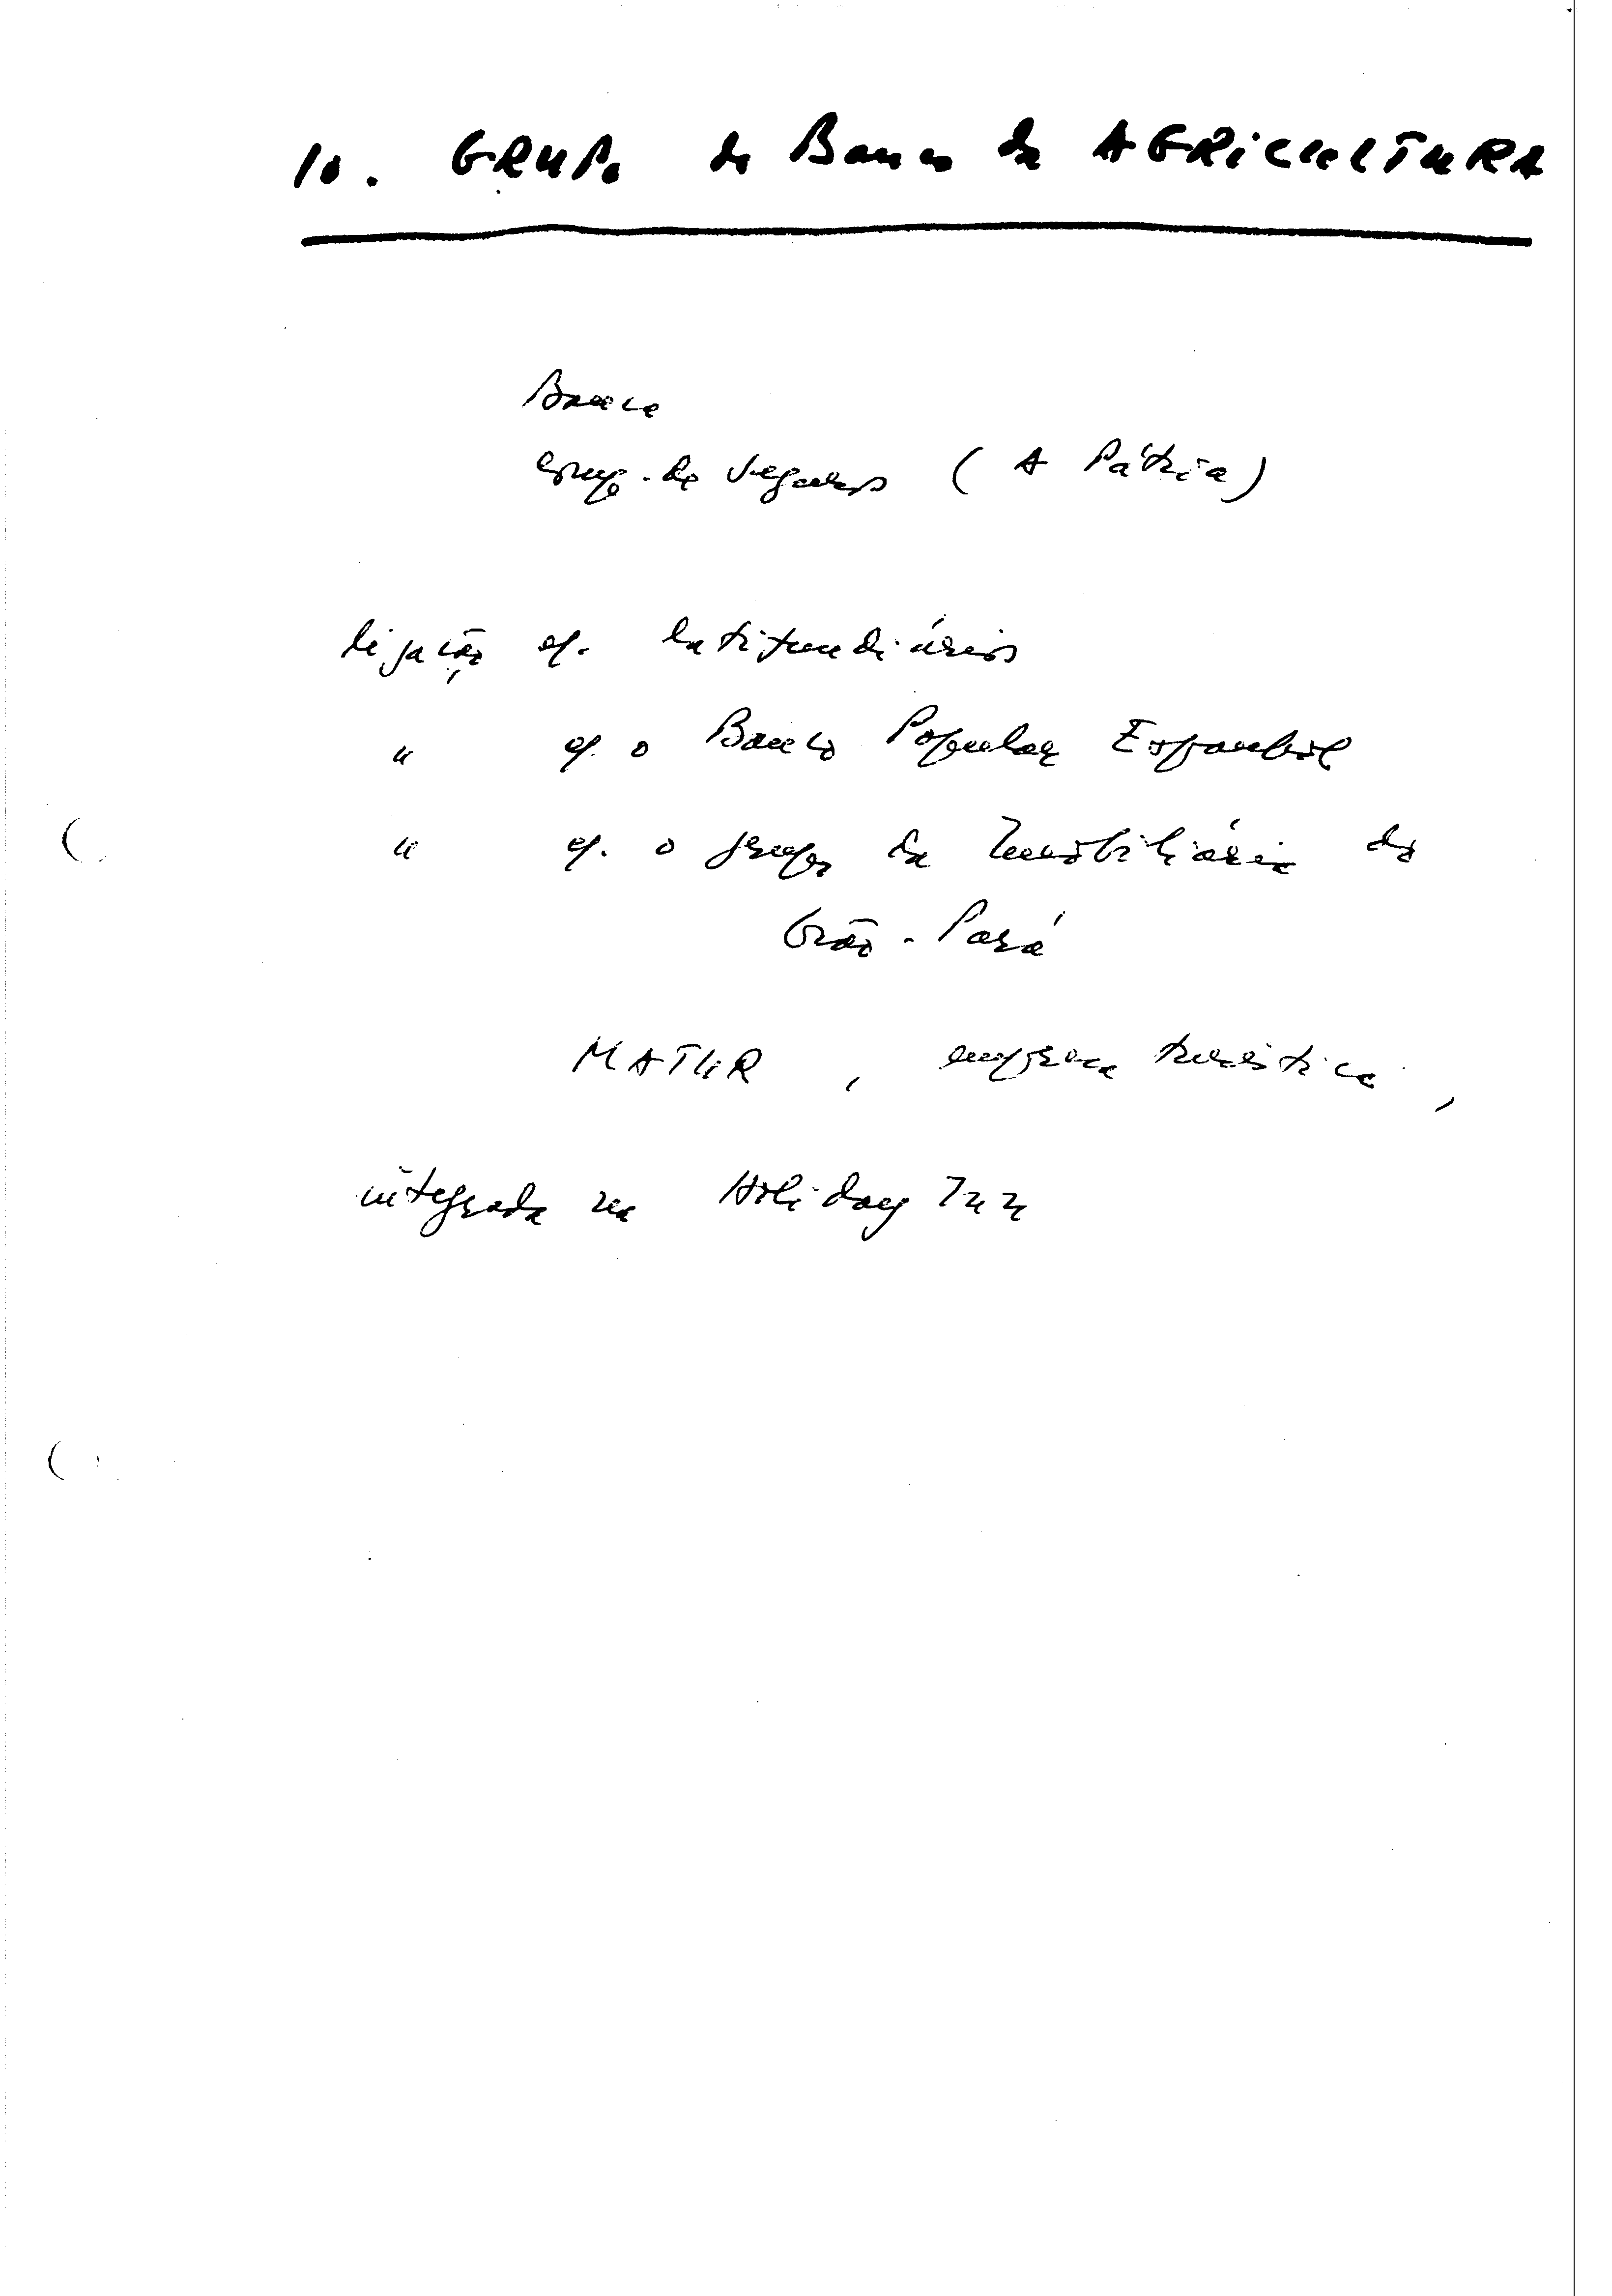 10. GRUPO do Banco da AGRICULTURA
Banco
Comp. de Seguros (A Pátria)
ligação c/. latifundiários
" c/. o Banco Popular Espanhol
" c/. o grupo da Imobiliária do
Grão-Pará
MATUR, empresa turística,
integrada na Holiday Inn